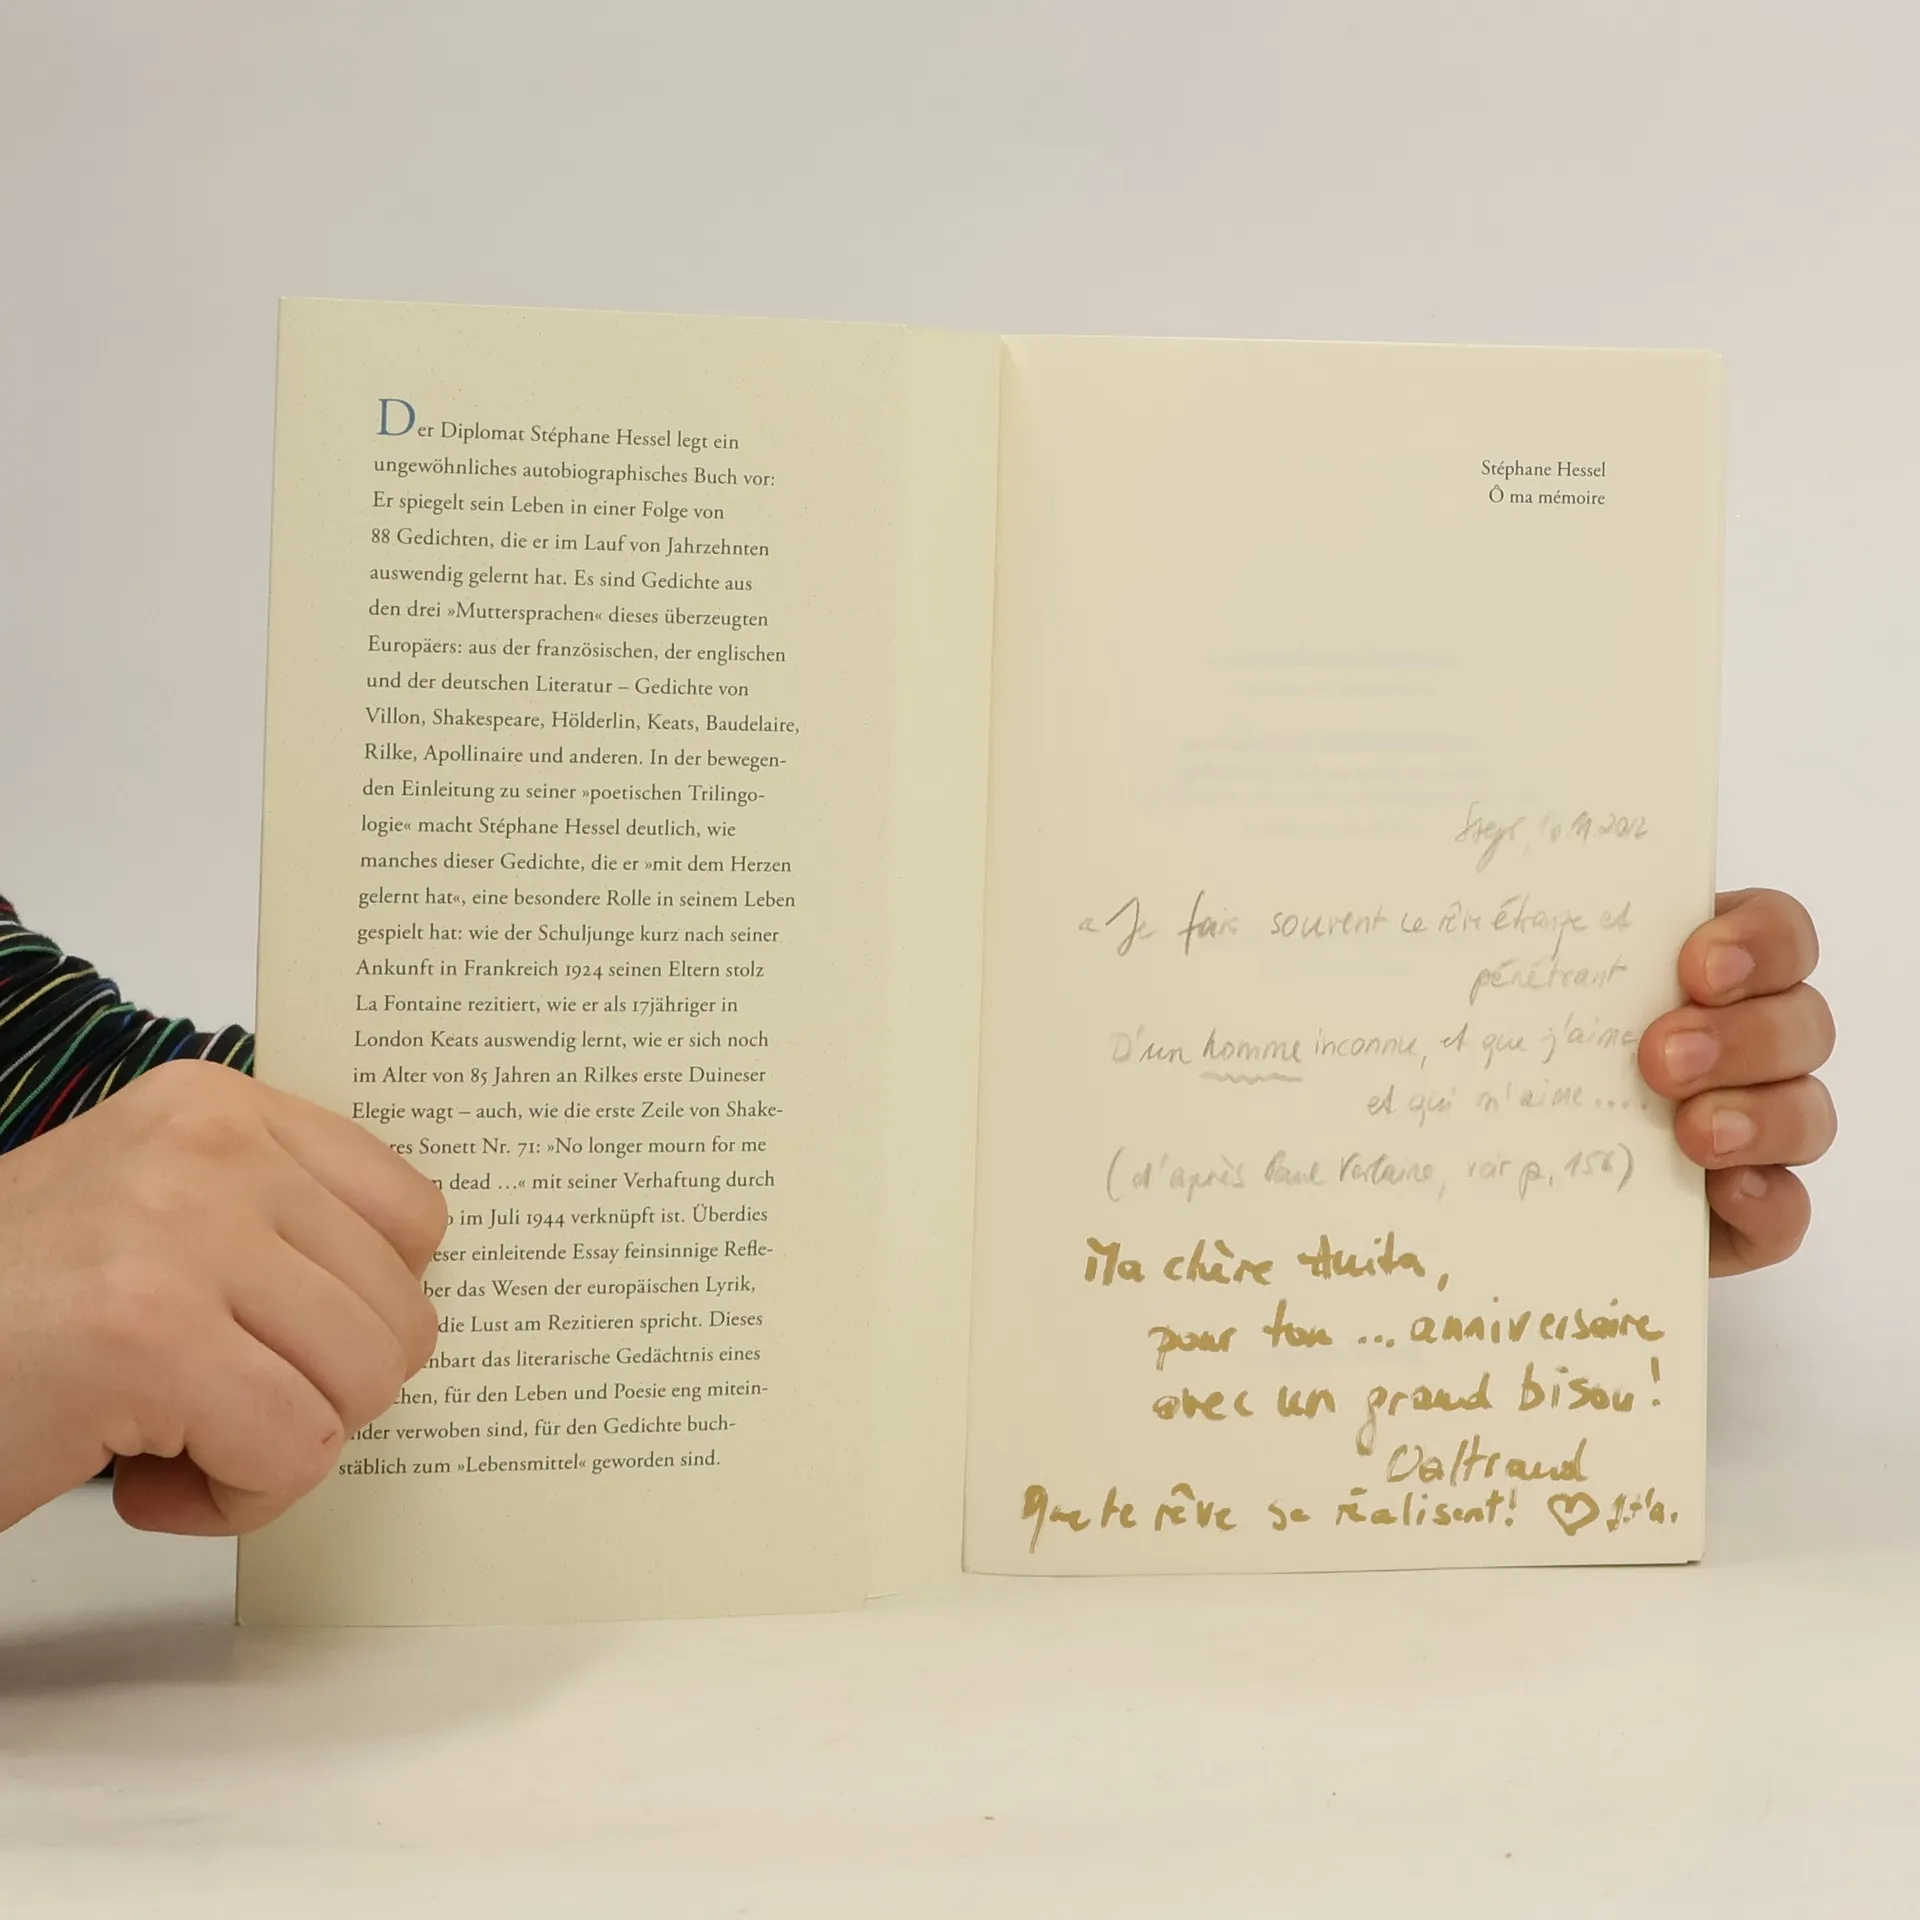 Der Diplomat Stéphane Hessel legt ein
ungewöhnliches autobiographisches Buch vor:
Er spiegelt sein Leben in einer Folge von
88 Gedichten, die er im Lauf von Jahrzehnten
auswendig gelernt hat. Es sind Gedichte aus
den drei »Muttersprachen« dieses überzeugten
Europäers: aus der französischen, der englischen
und der deutschen Literatur – Gedichte von
Villon, Shakespeare, Hölderlin, Keats, Baudelaire,
Rilke, Apollinaire und anderen. In der bewegen-
den Einleitung zu seiner »poetischen Trilingo-
logie« macht Stéphane Hessel deutlich, wie
manches dieser Gedichte, die er »mit dem Herzen
gelernt hat«, eine besondere Rolle in seinem Leben
gespielt hat: wie der Schuljunge kurz nach seiner
Ankunft in Frankreich 1924 seinen Eltern stolz
La Fontaine rezitiert, wie er als 17jähriger in
London Keats auswendig lernt, wie er sich noch
im Alter von 85 Jahren an Rilkes erste Duineser
Elegie wagt – auch, wie die erste Zeile von Shake-
res Sonett Nr. 71: »No longer mourn for me
dead ...« mit seiner Verhaftung durch
im Juli 1944 verknüpft ist. Überdies
eser einleitende Essay feinsinnige Refle-
ber das Wesen der europäischen Lyrik,
die Lust am Rezitieren spricht. Dieses
nbart das literarische Gedächtnis eines
chen, für den Leben und Poesie eng mitein-
nder verwoben sind, für den Gedichte buch-
stäblich zum »Lebensmittel« geworden sind.
Stéphane Hessel
Ô ma mémoire
2012
« Je fais souvent ce rêve étrange et
pénétrant
D'un homme inconnu, et que j'aime,
et qui m'aime ....
(d'après Paul Verlaine, voir p. 156)
Ma chère Anita,
pour ton ... anniversaire
avec un grand bisou!
Valtraud
Que te rêve se réalisent! ♡